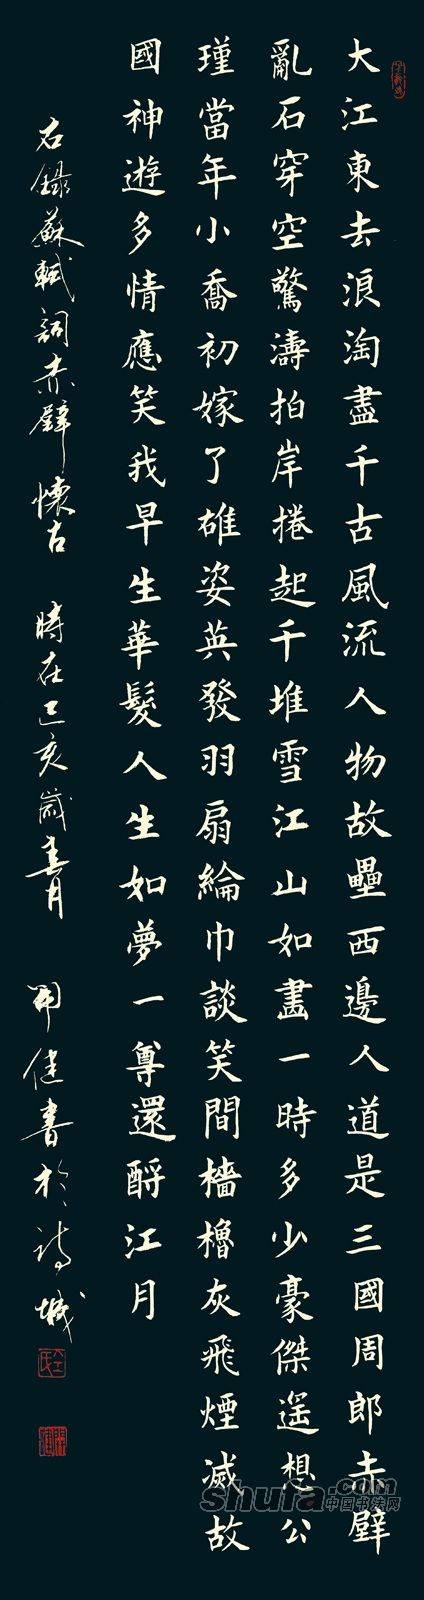 大江東去浪淘盡千古風流人物故壘西邊人道是三國周郎赤壁
亂石穿空驚濤拍岸捲起千堆雪江山如畫一時多少豪傑遥想公
瑾當年小喬初嫁了雄姿英發羽扇綸巾談笑間檣櫓灰飛煙滅故
國神遊多情應笑我早生華髮人生如夢一尊還酹江月
右錄蘇軾詞赤壁懷古 時在己亥歲春月 開健書於詩城
shufa.com
中国书法网